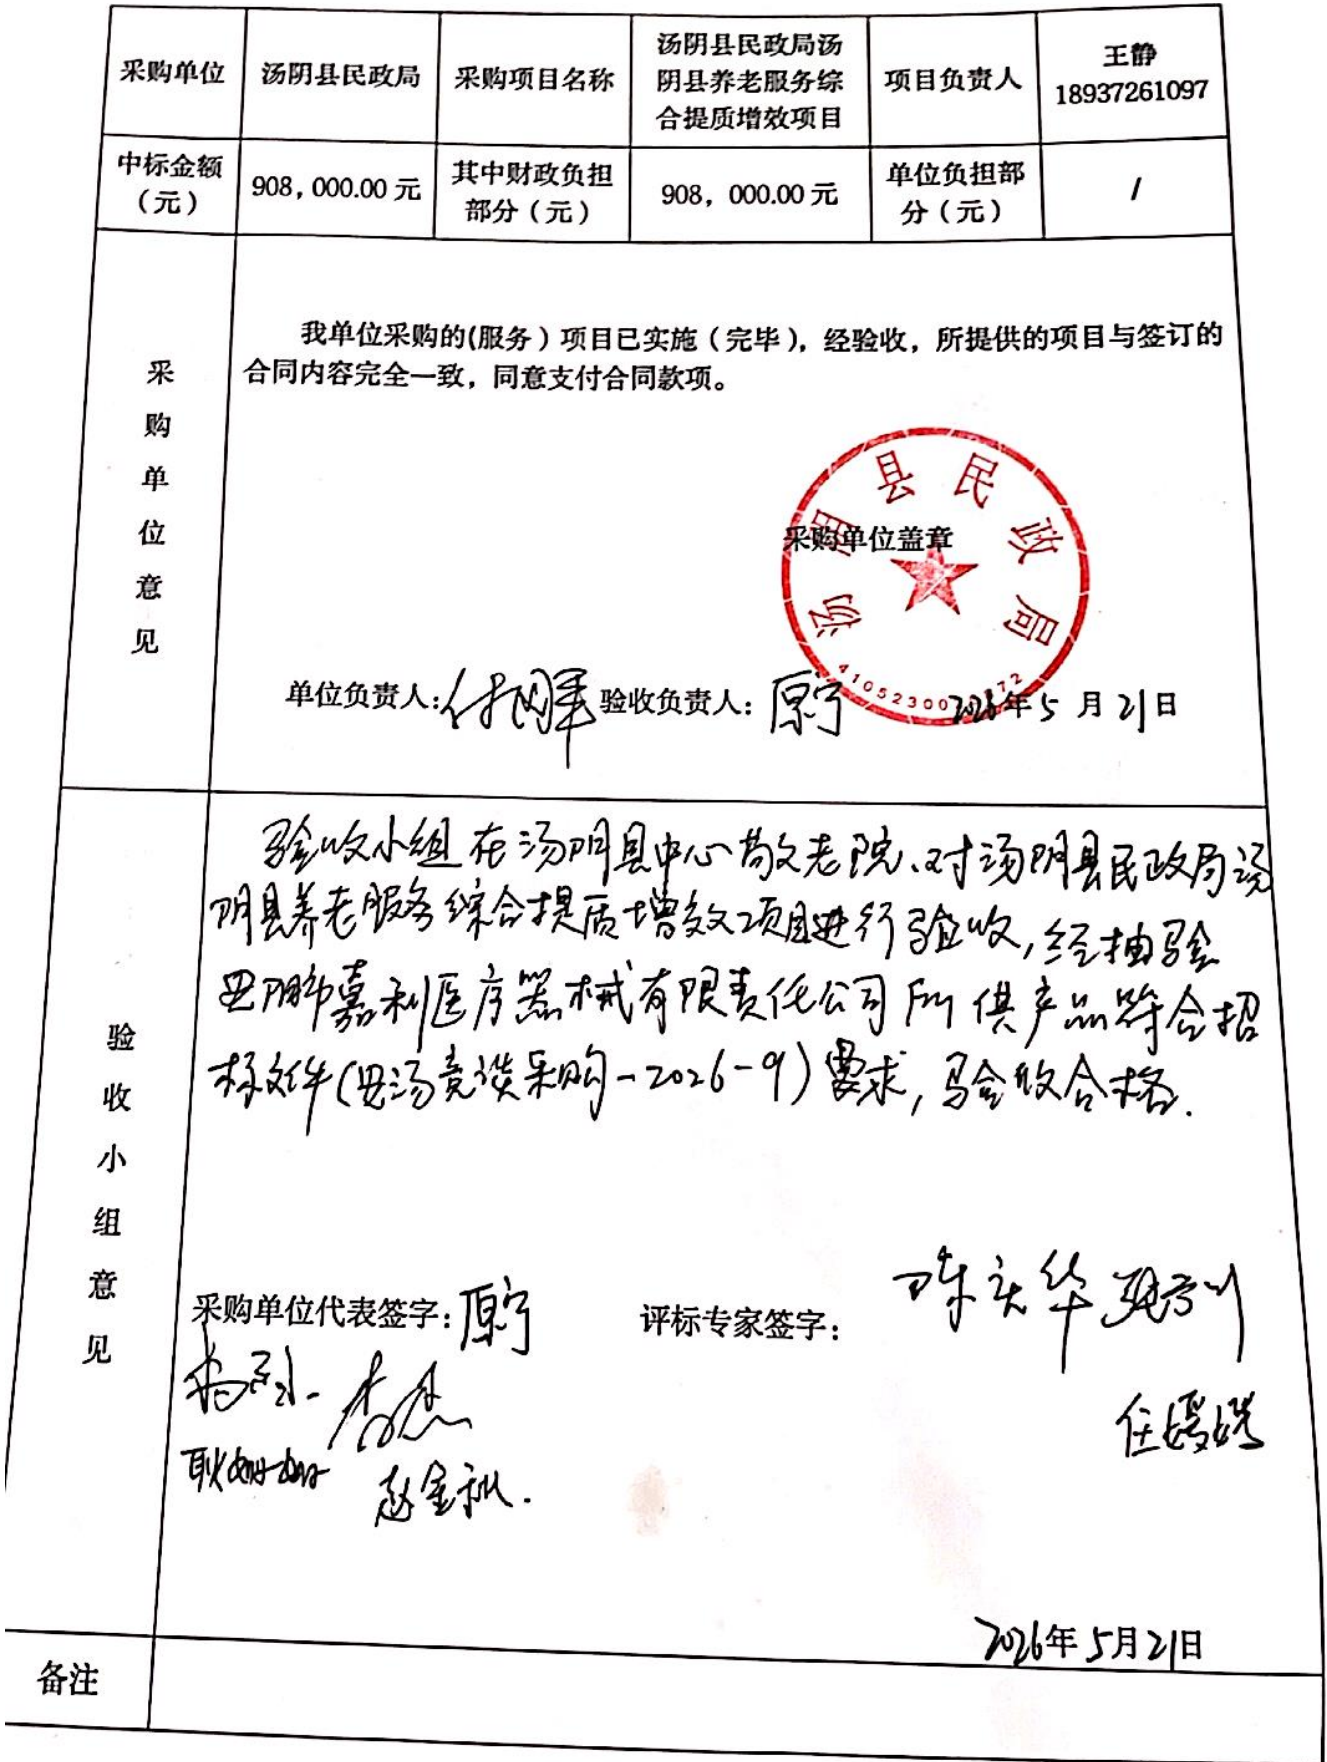 采购单位 汤阴县民政局 采购项目名称 汤阴县民政局汤
阴县养老服务综
合提质增效项目 项目负责人 王静
18937261097
中标金额
（元） 908，000.00 元 其中财政负担
部分（元） 908，000.00 元 单位负担部
分（元） /
采
购
单
位
意
见
我单位采购的(服务）项目已实施（完毕），经验收，所提供的项目与签订的
合同内容完全一致，同意支付合同款项。
汤阴县民政局
采购单位盖章
单位负责人: 验收负责人: 原宁 2026年5月21日
验
收
小
组
意
见
验收小组在汤阴县中心敬老院、对汤阴县民政局汤
阴县养老服务综合提质增效项目进行验收,经抽验
安阳市嘉利医疗器械有限责任公司所供产品符合招
标文件(安汤竞谈采购-2026-9)要求,验收合格.
采购单位代表签字: 原宁 评标专家签字:
耿姗姗
2026年5月21日
备注